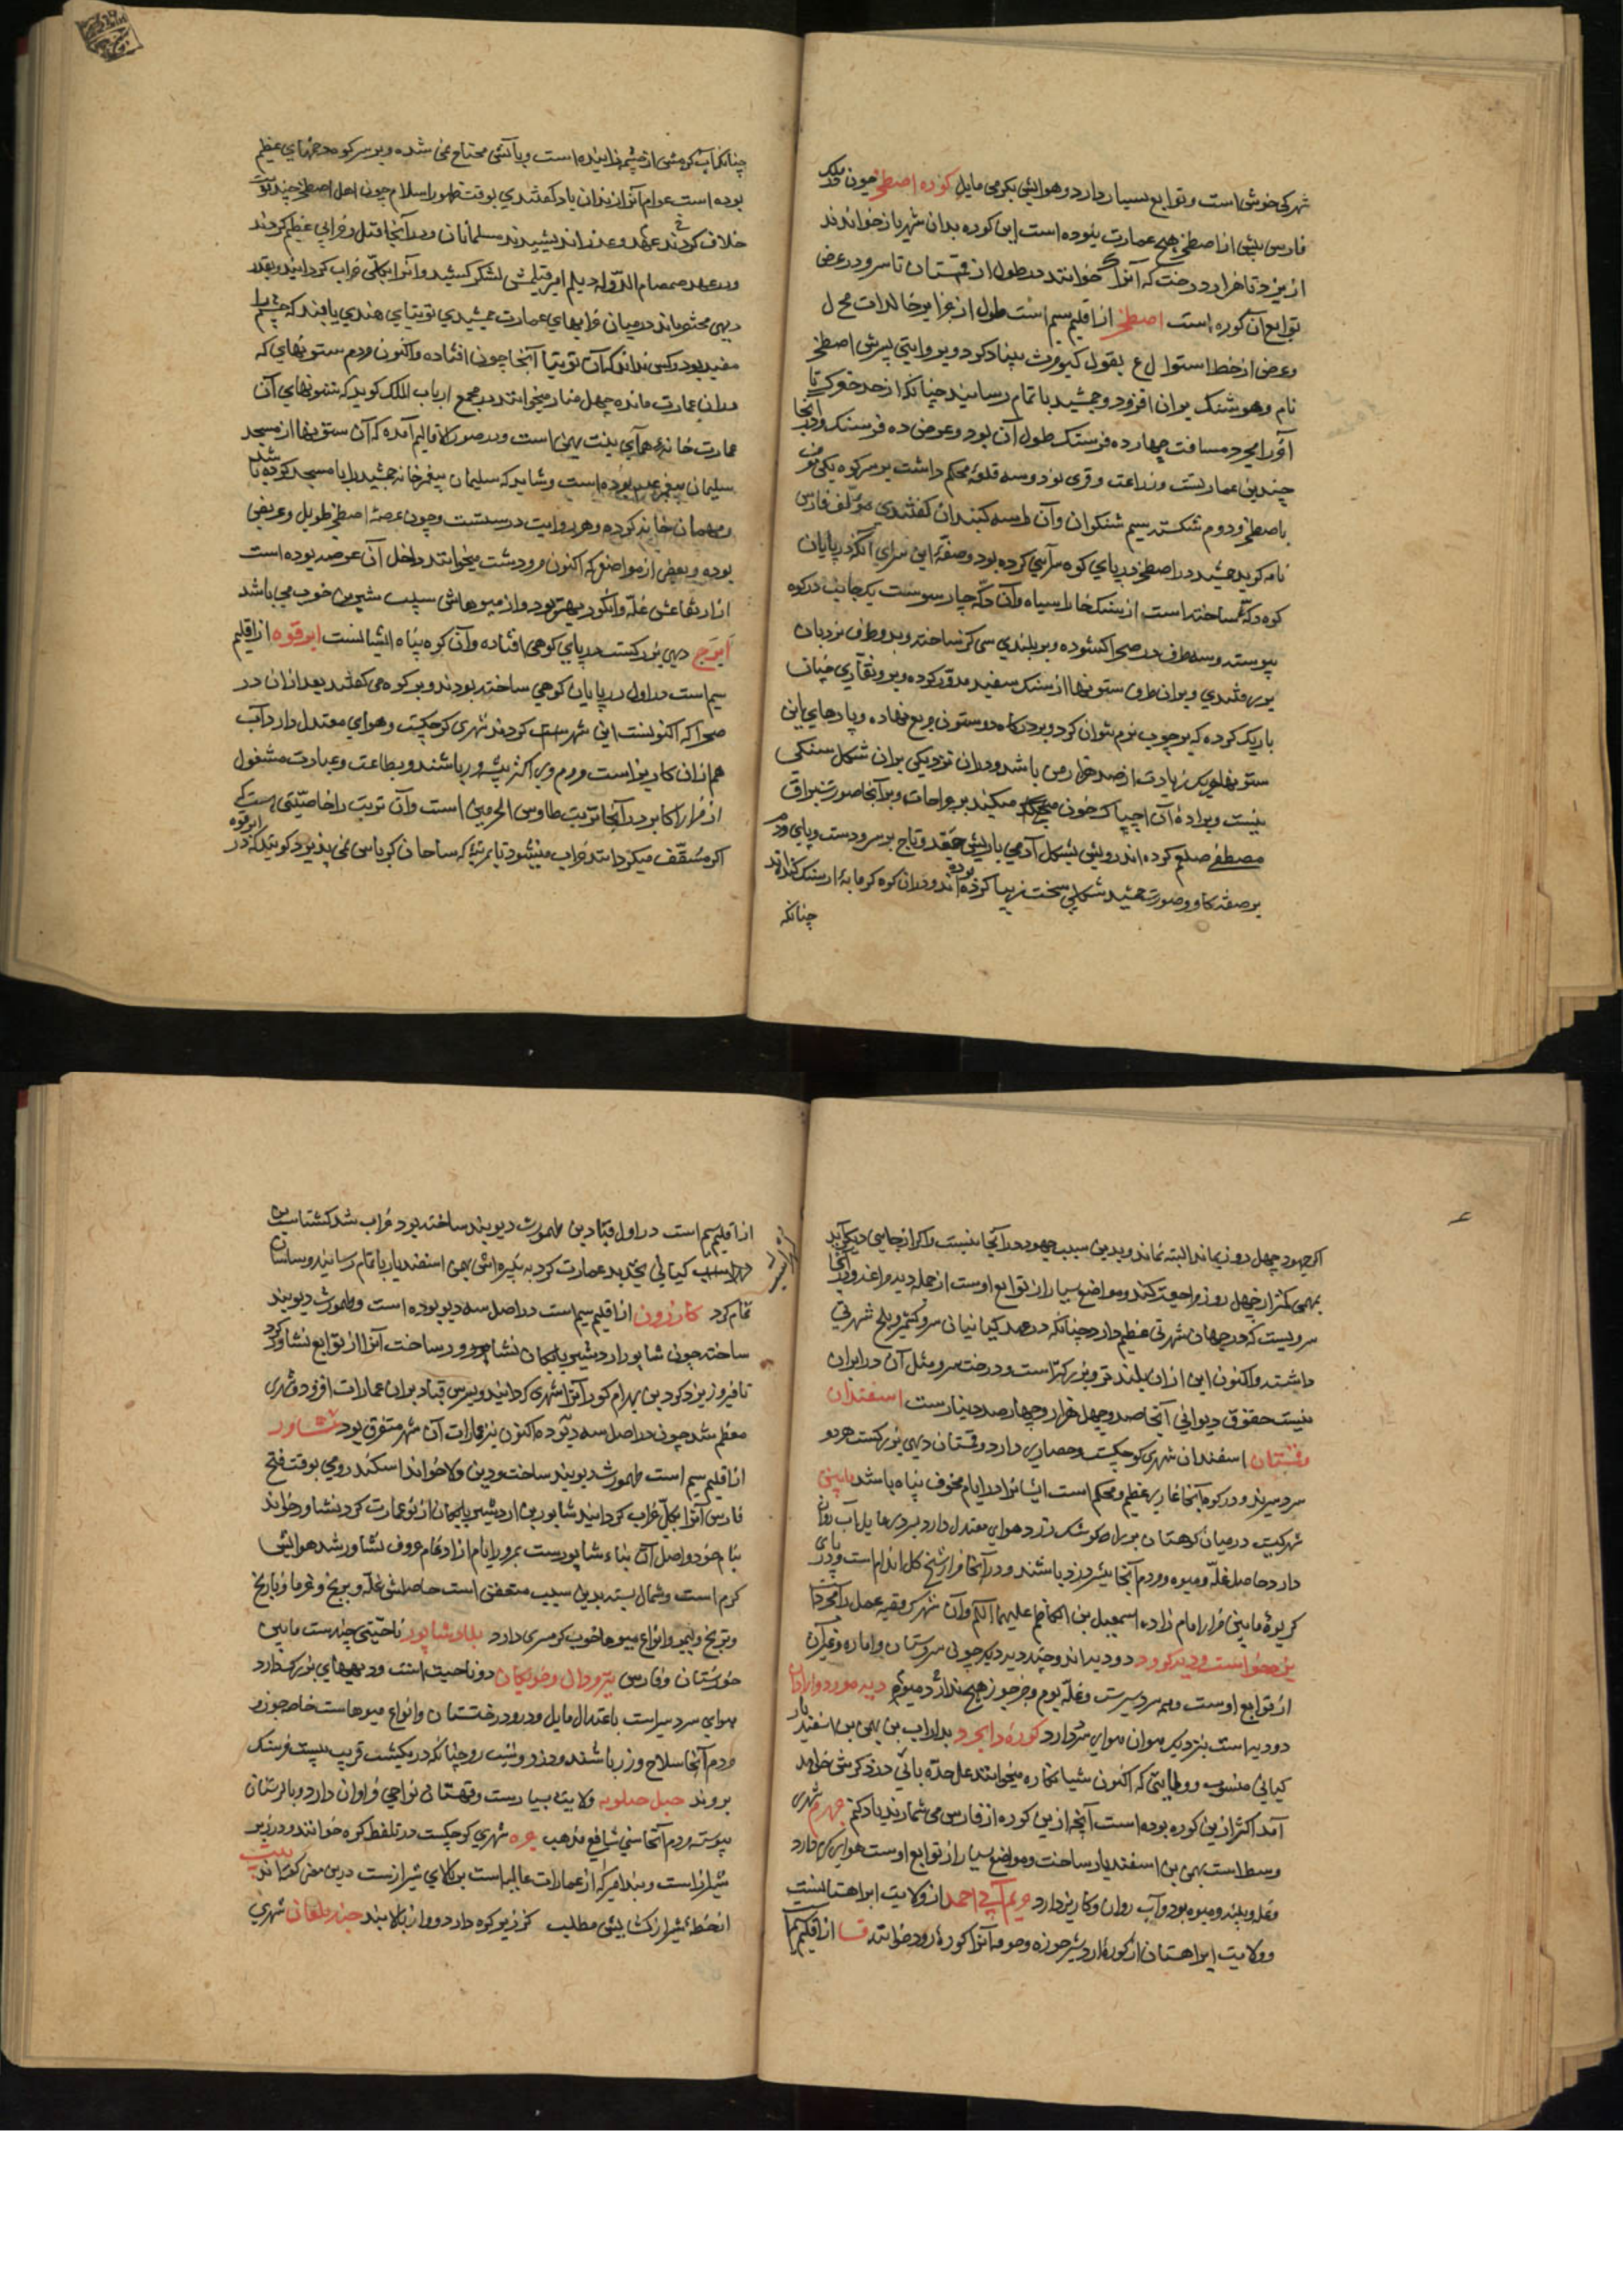 شهرکی خوش است و توابع بسیار دارد و هوایش بگرمی مایل کوره اصطخر چون در ملک
فارس پیش از اصطخر هیچ عمارت نبوده است این کوره بدان شهر باز خوانده‌اند
از یزد تا هزار درخت که آنرا خوانند در طول از قهستان تا سرو در عرض
توابع آن کوره است اصطخر از اقلیم سیم است طول از جزایر خالدات مح ل
و عرض از خط استوا ل ع بقول کیومرث بنیاد کرد و بروایتی پسرش اصطخر
نام و هوشنگ بران افزود و جمشید باتمام رسانید چنانکه از حد خفرک تا
آخر رامجرد مسافت چهارده فرسنگ طول آن بود و عرض ده فرسنگ و در آنجا
چندین عمارتست و زراعت و قری بود و سه قلعه محکم داشت بر سر کوه یکی معروف
باصطخر و دوم شکسته سیم شنکوان و آن را سه کنبدان گفتندی مؤلف فارس
نامه کوید جمشید در اصطخر در پای کوه سرآئی کرده بود و صفة این سرای آنکه در پایان
کوه دکّه ساخته است از سنک خارا سیاه و آن دکّه چار سوست یکجانب در کوه
پیوسته و سه طرف در صحرا کشوده و بر بلندی سی گز ساخته و بدو طرف نردبان
بر رفتندی و بران طرف ستونها از سنک سفید مدوّر کرده و برو نقآری چنان
باریک کرده که بر چوب نرم نتوان کرد و بر درکاه دو ستون مربع نهاده و پادهای این
ستونها هر یک زیادت از صد هزار من باشد و دران نزدیکی بران شکل سنکی
نیست و براده آن امساک خون میکند بر جراحات و بر آنجا صورت براق
مصطفی صلعم کرده‌اند رویش بشکل آدمی با ریش مجعّد و تاج بر سر و دست و پای و دم
بر صفه کاو و صورت جمشید بشکلی سخت زیبا کرده بوده‌اند و دران کوه کرمابه از سنک کنده‌اند
چنانکه
چنانکه آب کرمش از چشمه زاینده است و بآتش محتاج نمی شده و بر سر کوه دخمهای عظیم
بوده است عوام آنرا زندان باد گفتندی بوقت ظهور اسلام چون اهل اصطخر چند نوبت
خلاف کردند عهد و عذر اندیشیدند مسلمانان در آنجا قتل و خرابی عظیم کردند
و در عهد صمصام الدّوله دیلم امیر قتلمش لشکر کشید و آنرا بکلّی خراب کردانید و بقدر
دیهی مختصر ماند در میان خرابهای عمارت جمشیدی توتیای هندی یابند که چشم را
مفید بود و کس نداند که آن توتیا آنجا چون افتاده و اکنون مردم ستونهای که
دران عمارت مانده چهل منار میخوانند در مجمع ارباب الملک کوید که ستونهای آن
عمارت خانه همآی بنت بهمن است و در صور الاقالیم آمده که آن ستونها از مسجد
سلیمان پیغمبر علیه بوده است و شاید که سلیمان پیغمبر خانه جمشید را با مسجد کرده باشد
و مهمان خانه کرده و هر دو روایت درستست و چون عرصهٔ اصطخر طویل و عریض
بوده و بعضی از مواضع که اکنون مرودشت میخوانند داخل آن عرصه بوده است
از ارتفاعش غلّه و انکور بهتر بود و از میوهاش سیب شیرین خوب می باشد
ایرج دیهی بزرکست در پای کوهی افتاده و آن کوه پناه ایشانست ابرقوه از اقلیم
سیم است در اول در پایان کوهی ساخته بودند و بر کوه می گفتند بعد ازان در
صحرا که اکنونست این شهر ساخته کردند شهری کوچکست و هوای معتدل دارد آب
هم از ان کاریز است مردم وی اکثر پیشه ور باشند و بطاعت و عبادت مشغول
از مزار اکابر در آنجا تربت طاوس الحرمین است و آن تربت را خاصّیتی هست که
اکر مسقّف میکردانند خراب میشود تا بمرتبهٔ که ساحات کرباس نمی پذیرد کویند که در ابرقوه
اکر جهود چهل روز بماند البته نماند و بدین سبب جهود در آنجا نیست و اکر از جایی دیکر آید
بمهمی کمتر از چهل روز مراجعت کند و مواضع بسیار از توابع اوست از جمله دیه مراغه و در آنجا
سرویست که در جهان شهرتی عظیم دارد چنانکه در عهد کیانیان سرو کشمیر و بلخ شهرتی
داشته و اکنون این ازان بلند تر و بزرکتر است و درخت سرو مثل آن در ایران
نیست حقوق دیوانی آنجا صد و چهل هزار و چهارصد دینارست اسفندان
قهستان اسفندان شهری کوچکست و حصاری دارد و قهستان دیهی بزرکست هر دو
سردسیرند و در کوه آنجا غاری عظیم و محکم است ایشانرا در ایام مخوف پناه باشد مایین
شهرکیست در میان کوهستان بر راه کوشک زرد هوای معتدل دارد بسردی مایل آب روان
دارد حاصل غلّه و میوه و مردم آنجا بیشتر دزد باشند و در آنجا مزار شیخ کل اندام است و در پای
کریوهٔ مایین مزار امام زاده اسمعیل بن الکاظم علیهما السلام و آن شهرک
دو دیه‌اند و چند دیه دیکر چون سروستان و اباده و غیر آن
از توابع اوست و همه سردسیرست و غلّه بوم و جز جوز هیچ ندارد میوه دیه مورد و رادان
دو دیه است بنزدیک هوای سرد دارد کورهٔ دابجرد بداراب بن بهمن بن اسفندیار
کیانی منسوب و ولایتی که اکنون شبانکاره میخوانند علی حده بابی در ذکرش خواهد
آمد اکثر ازین کوره بوده است آنچه ازین کوره از فارس می شمارند یاد کنم جهرم شهری
وسط است بهمن بن اسفندیار ساخت و مواضع بسیار از توابع اوست هوای دارد
و غله و پنبه و میوه بود و آب روان و کاریز دارد جویم آبی احمد از ولایت ایراهستانست
و ولایت ایراهستان از کورهٔ اردشیر خوره و حومه آنرا کورهٔ رود خوانند فسا از اقلیم
از اقلیم سیم است در اول قباد بن طهمورث دیوبند ساخته بود خراب شد کشتاسب بن
لهراسب کیانی بتجدید عمارت کرد نبیره‌اش بهمن اسفندیار باتمام رسانید و ساسان
تمام کرد کازرون از اقلیم سیم است در اصل سه دیه بوده است و طهمورث دیوبند
ساخته چون شاپور اردشیر بابکان نشابور ساخت آنرا از توابع نشاور کرد
تا فیروز یزدکرد بن بهرام کور آنرا شهری کردانید و پسرش قباد بران عمارات افزود و شهری
معظم شد چون در اصل سه دیه بوده اکنون نیز عمارات آن شهر متفرق بود نشاور
از اقلیم سیم است طهمورث دیوبند ساخت و دین ولا خواند اسکندر رومی بوقت فتح
فارس آنرا بکلّ خراب کردانید شاپور بن اردشیر بابکان از نو عمارت کرد نشاور خواند
بنام خود و اصل آن بناء شاپورست بمرور ایام از ادغام معروف نشاور شد هوایش
کرم است و شمال بسته بدین سبب متعفن است حاصلش غلّه و برنج و خرما و نارنج
و ترنج و لیمو و انواع میوها خوب کرمسری دارد بلاد شاپور ناحیّتی چندست مابین
خوزستان و فارس تیر مردال و خوبکان دو ناحیت است و دیههای بزرک دارد
هوای سردسیر است باعتدال مایل و درو درختستان و انواع میوهاست خاصه جوز و
مردم آنجا سلاح ورز باشند و دزد و شب رو چنانکه در یکشب قریب بیست فرسنک
بروند جبل جیلویه ولایتی بسیارست و قهستانی نواحی فراوان دارد و با لرستان
پیوسته مردم آنجا سنّی شافعی مذهب جره شهری کوچکست در تلفظ کره خوانند و در زیر
شیرازست و بند امیر که از عمارات عالیهاست بر بالای شیرازست درین معنی گفته‌اند بیت
از خطهٔ شیراز کشایش مطلب کز زیر کره دارد و از بالا بند جندیلغان شهری